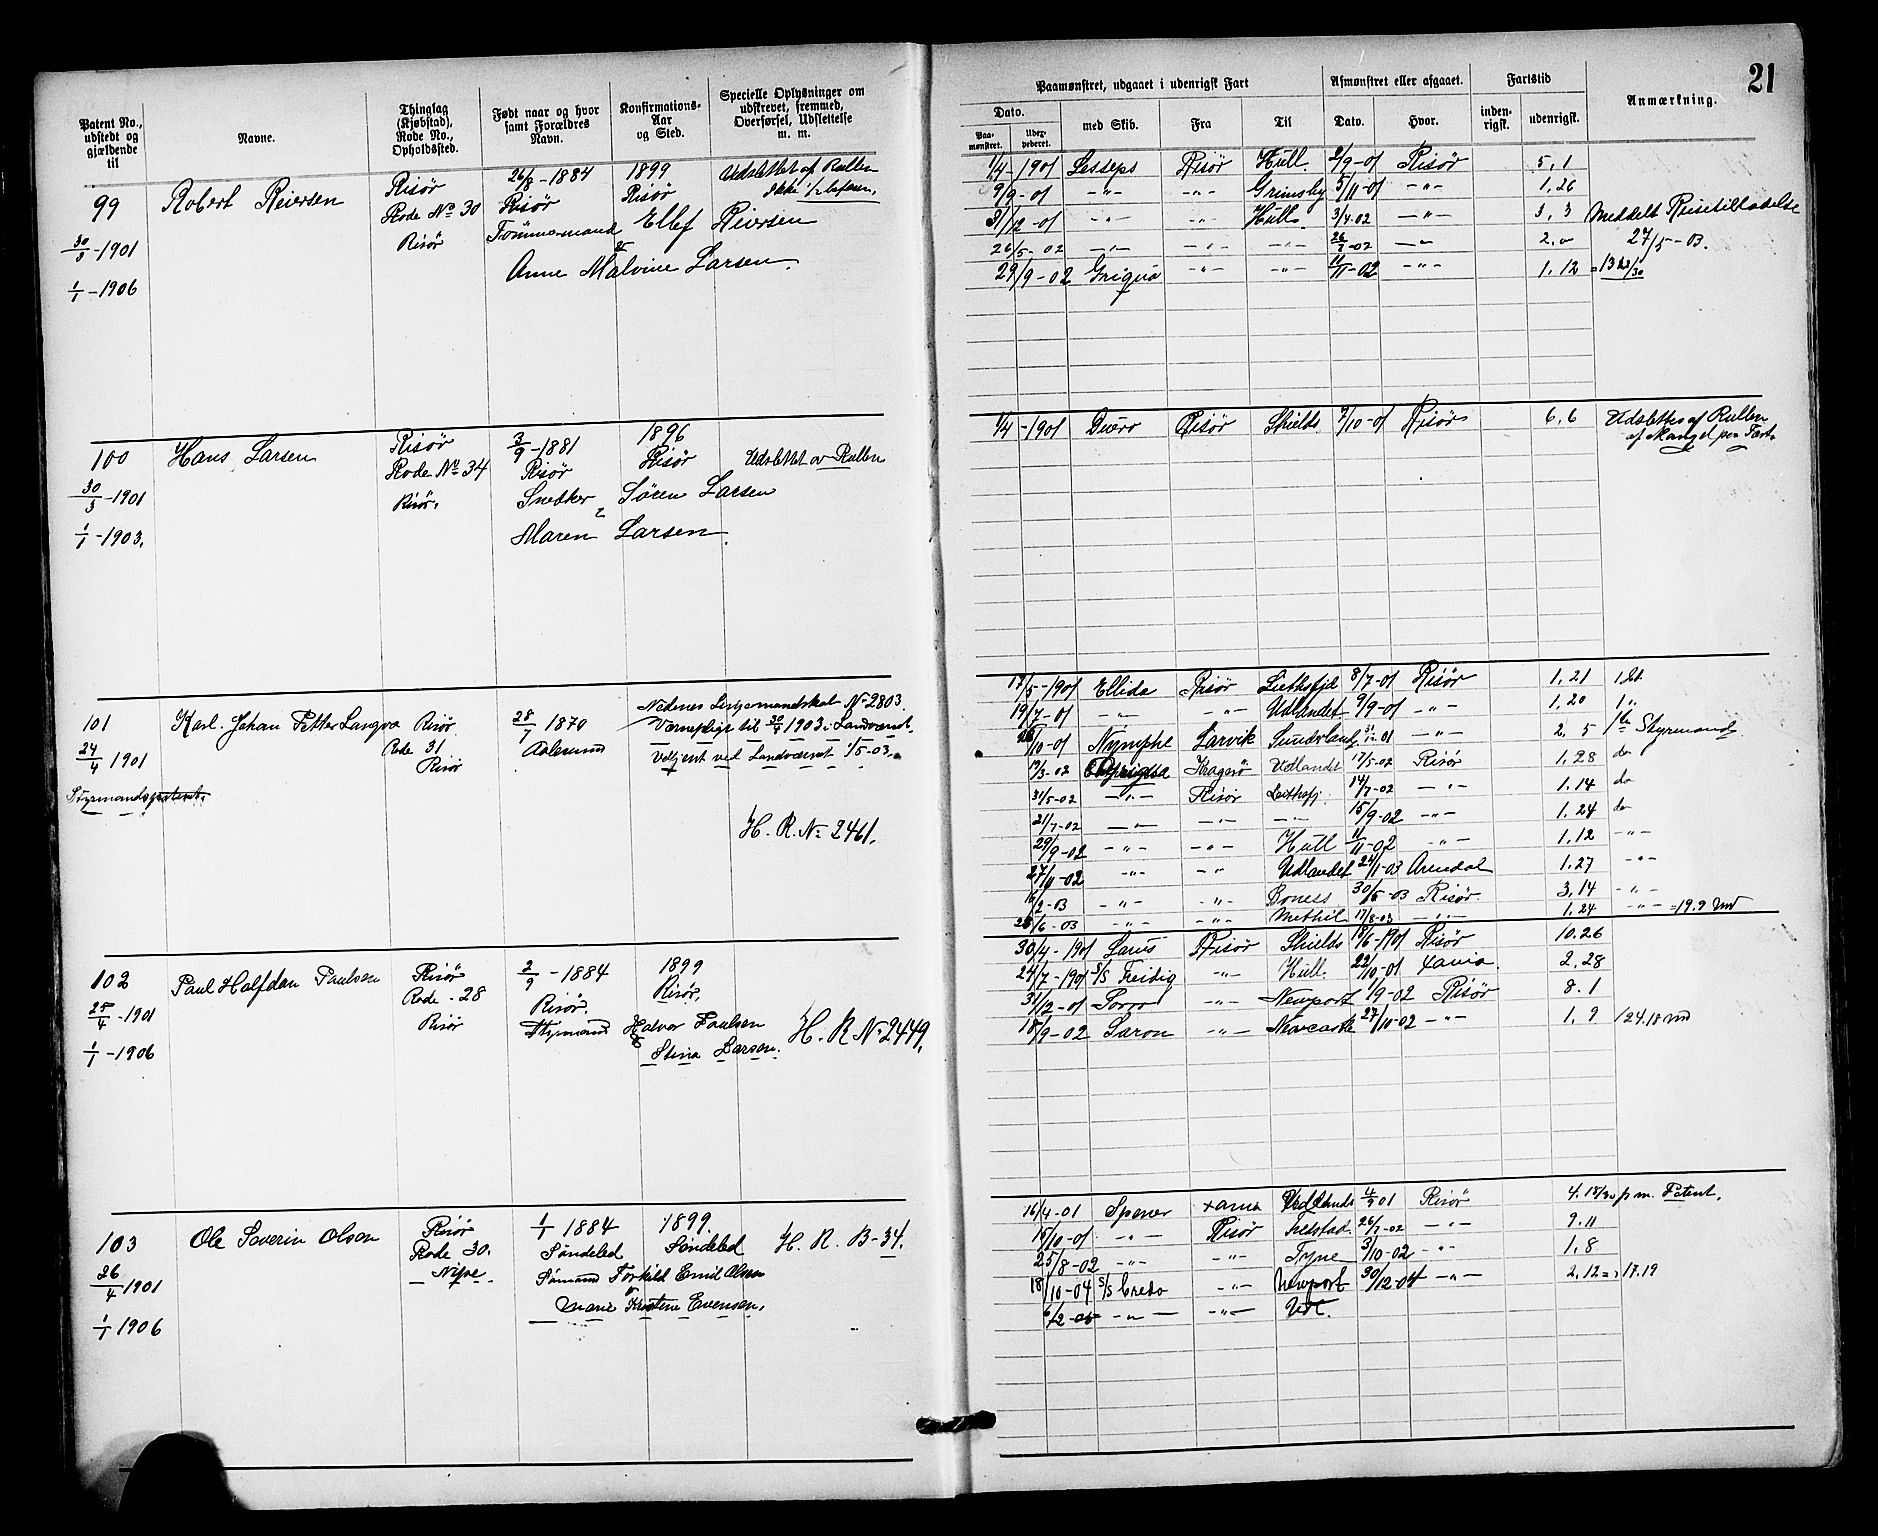 21
Patent No., udstedt og gjældende til
Navne.
Thinglag (Kjøbstad), Rode No., Opholdssted.
Født naar og hvor samt Forældres Navn.
Konfirmations-Aar og Sted.
Specielle Oplysninger om udskrevet, fremmed, Overførsel, Udslettelse m. m.
Paamønstret, udgaaet i udenrigsk Fart
Dato.
Paamønstret.
med Skib.
Fra
Til
Afmønstret eller afgaaet.
Dato.
Hvor.
Fartstid
indenrigsk.
udenrigsk.
Anmærkning.
99
30/3-1901
1/1-1906
Robert Reiersen
Risör
Rode No 30
Risör
26/8-1884
Risör
Tømmermand Ellef Reiersen
&
Anne Malvine Larsen.
1899
Risör
Udslettet af Rullen
1/4 1901 Lesseps Risör Hull. 2/9-01 Risör 5,1
9/9-01 -"- -"- Grimsby 5/11-01 -"- 1,26
31/12-01 -"- -"- Hull 3/4-02 -"- 3,3 Meddelt Reisetilladelse
26/5-02 -"- -"- -"- 26/7-02 -"- 2,0 27/5-03.
29/9-02 Griqua -"- -"- 11/11-02 -"- 1,12
100
30/3-1901
1/1-1903.
Hans Larsen
Risör
Rode No 34
Risör.
3/9-1881
Risör
Snedker Sören Larsen
&
Maren Larsen.
1896
Risör
Udslettet av Rullen
1/4-1901 Duero Risör Shields 7/10-01 Risör 6,6 Udslettes af Rullen
af Mangel paa Fart.
101
24/4 1901
Styrmandspatent.
Karl Johan Petter Langva
Risör
Rode 31
Risör
28/7 1870
Aalesund
No 2803.
Værnepligt til 1903 i Landværnet.
Udtjent ved Landværnet 1/5-03.
H. R. No 2461.
17/5-1901 Ellida Risör 8/7-01 Risör 1,21
19/7-01 -"- -"- Udlandet 9/9-01 -"- 1,20
26/10-01 Nymphe Larvik Sunderland -"- 2,5 1ste Styrmand
17/3-02 Kragerö Udlandet 17/5-02 Risör 1,28 do
31/5-02 -"- Risör 14/7-02 -"- 1,14 do
21/7-02 -"- -"- -"- 15/9-02 -"- 1,24 do
29/9-02 -"- -"- Hull 11/11-02 -"- 1,12 -"-
27/11-02 -"- -"- Udlandet 24/1-03 Arendal 1,27 -"-
16/2-03 -"- -"- Boness 30/5-03 Risör 3,14 -"-
-"- -"- Methil 17/8-03 -"- 1,24 -"- =19.9 Md
102
25/4-1901
1/1-1906
Paul Halfdan Paulsen
Risör
Rode - 28
Risör
2/9-1884
Risör.
Styrmand Halvor Paulsen
&
Stina Larsen.
1899
Risör.
H. R No 2449.
30/4-1901 Larus Risör Shields 18/6-1901 Risör 10.26
24/7-1901 S/S Freidig -"- Hull. 22/10-01 Xania. 2,28
31/12-01 -"- Newport 1/9-02 Risör 8.1
18/9-02 Saron -"- Newcastle 27/10-02 -"- 1,9
103
26/4 1901
1/1 1906
Ole Severin Olsen
Risör
Rode 30.
1/1 1884
Söndeled
Sömand Torkild Emil Olsen
&
Marie Kristine Evensen.
1899.
Söndeled
H. R. B-34.
16/4-01 Spener Xania Udlandet 4/9 01 Risör Patent.
15/10-01 -"- Risör 26/7-02 -"- 9.11
25/8-02 -"- -"- Tyne 3/10-02 -"- 1,8
18/10-04 S/S Credo -"- Newport 30/12-04 -"- 2,12 = 17.19
6/2-05 -"- -"- Udl.